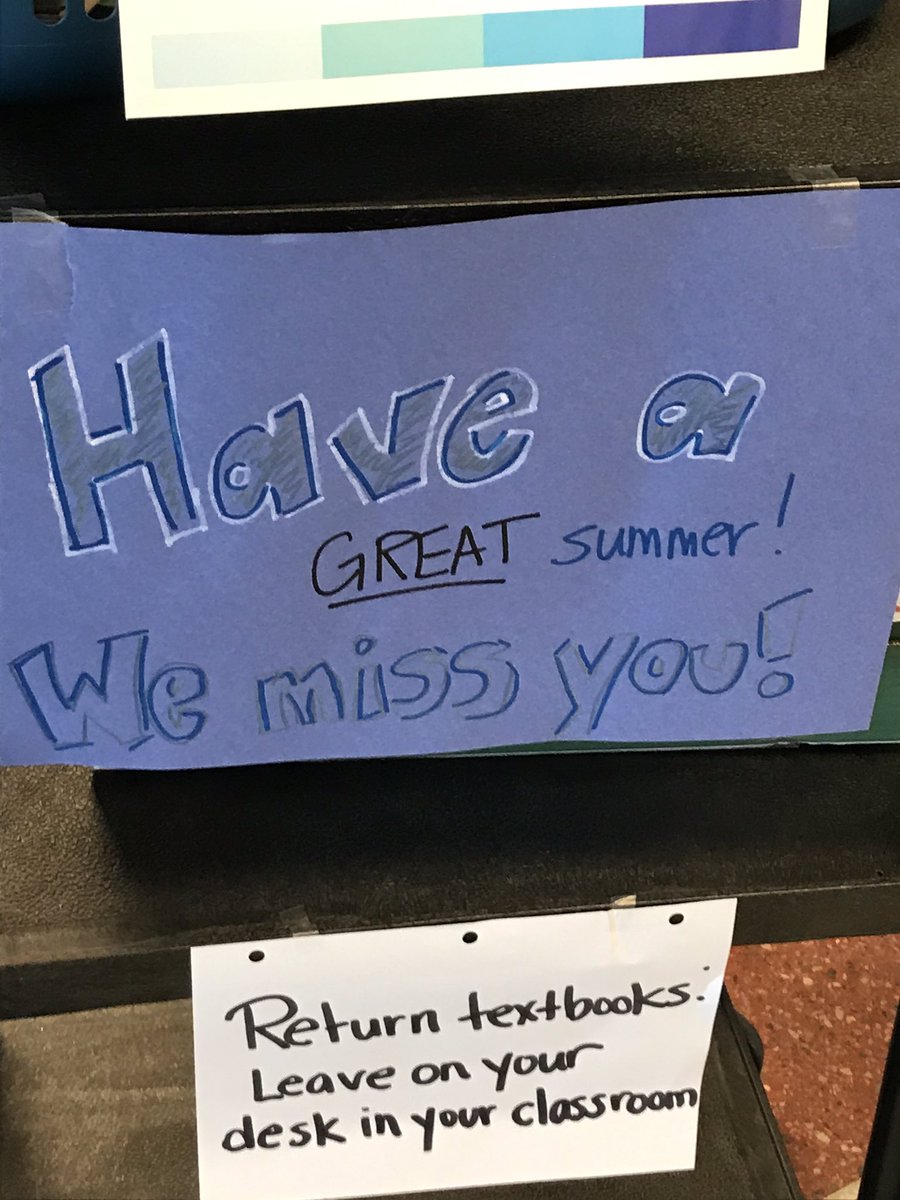 Have a
GREAT summer!
We miss you!
Return textbooks:
Leave on your
desk in your classroom